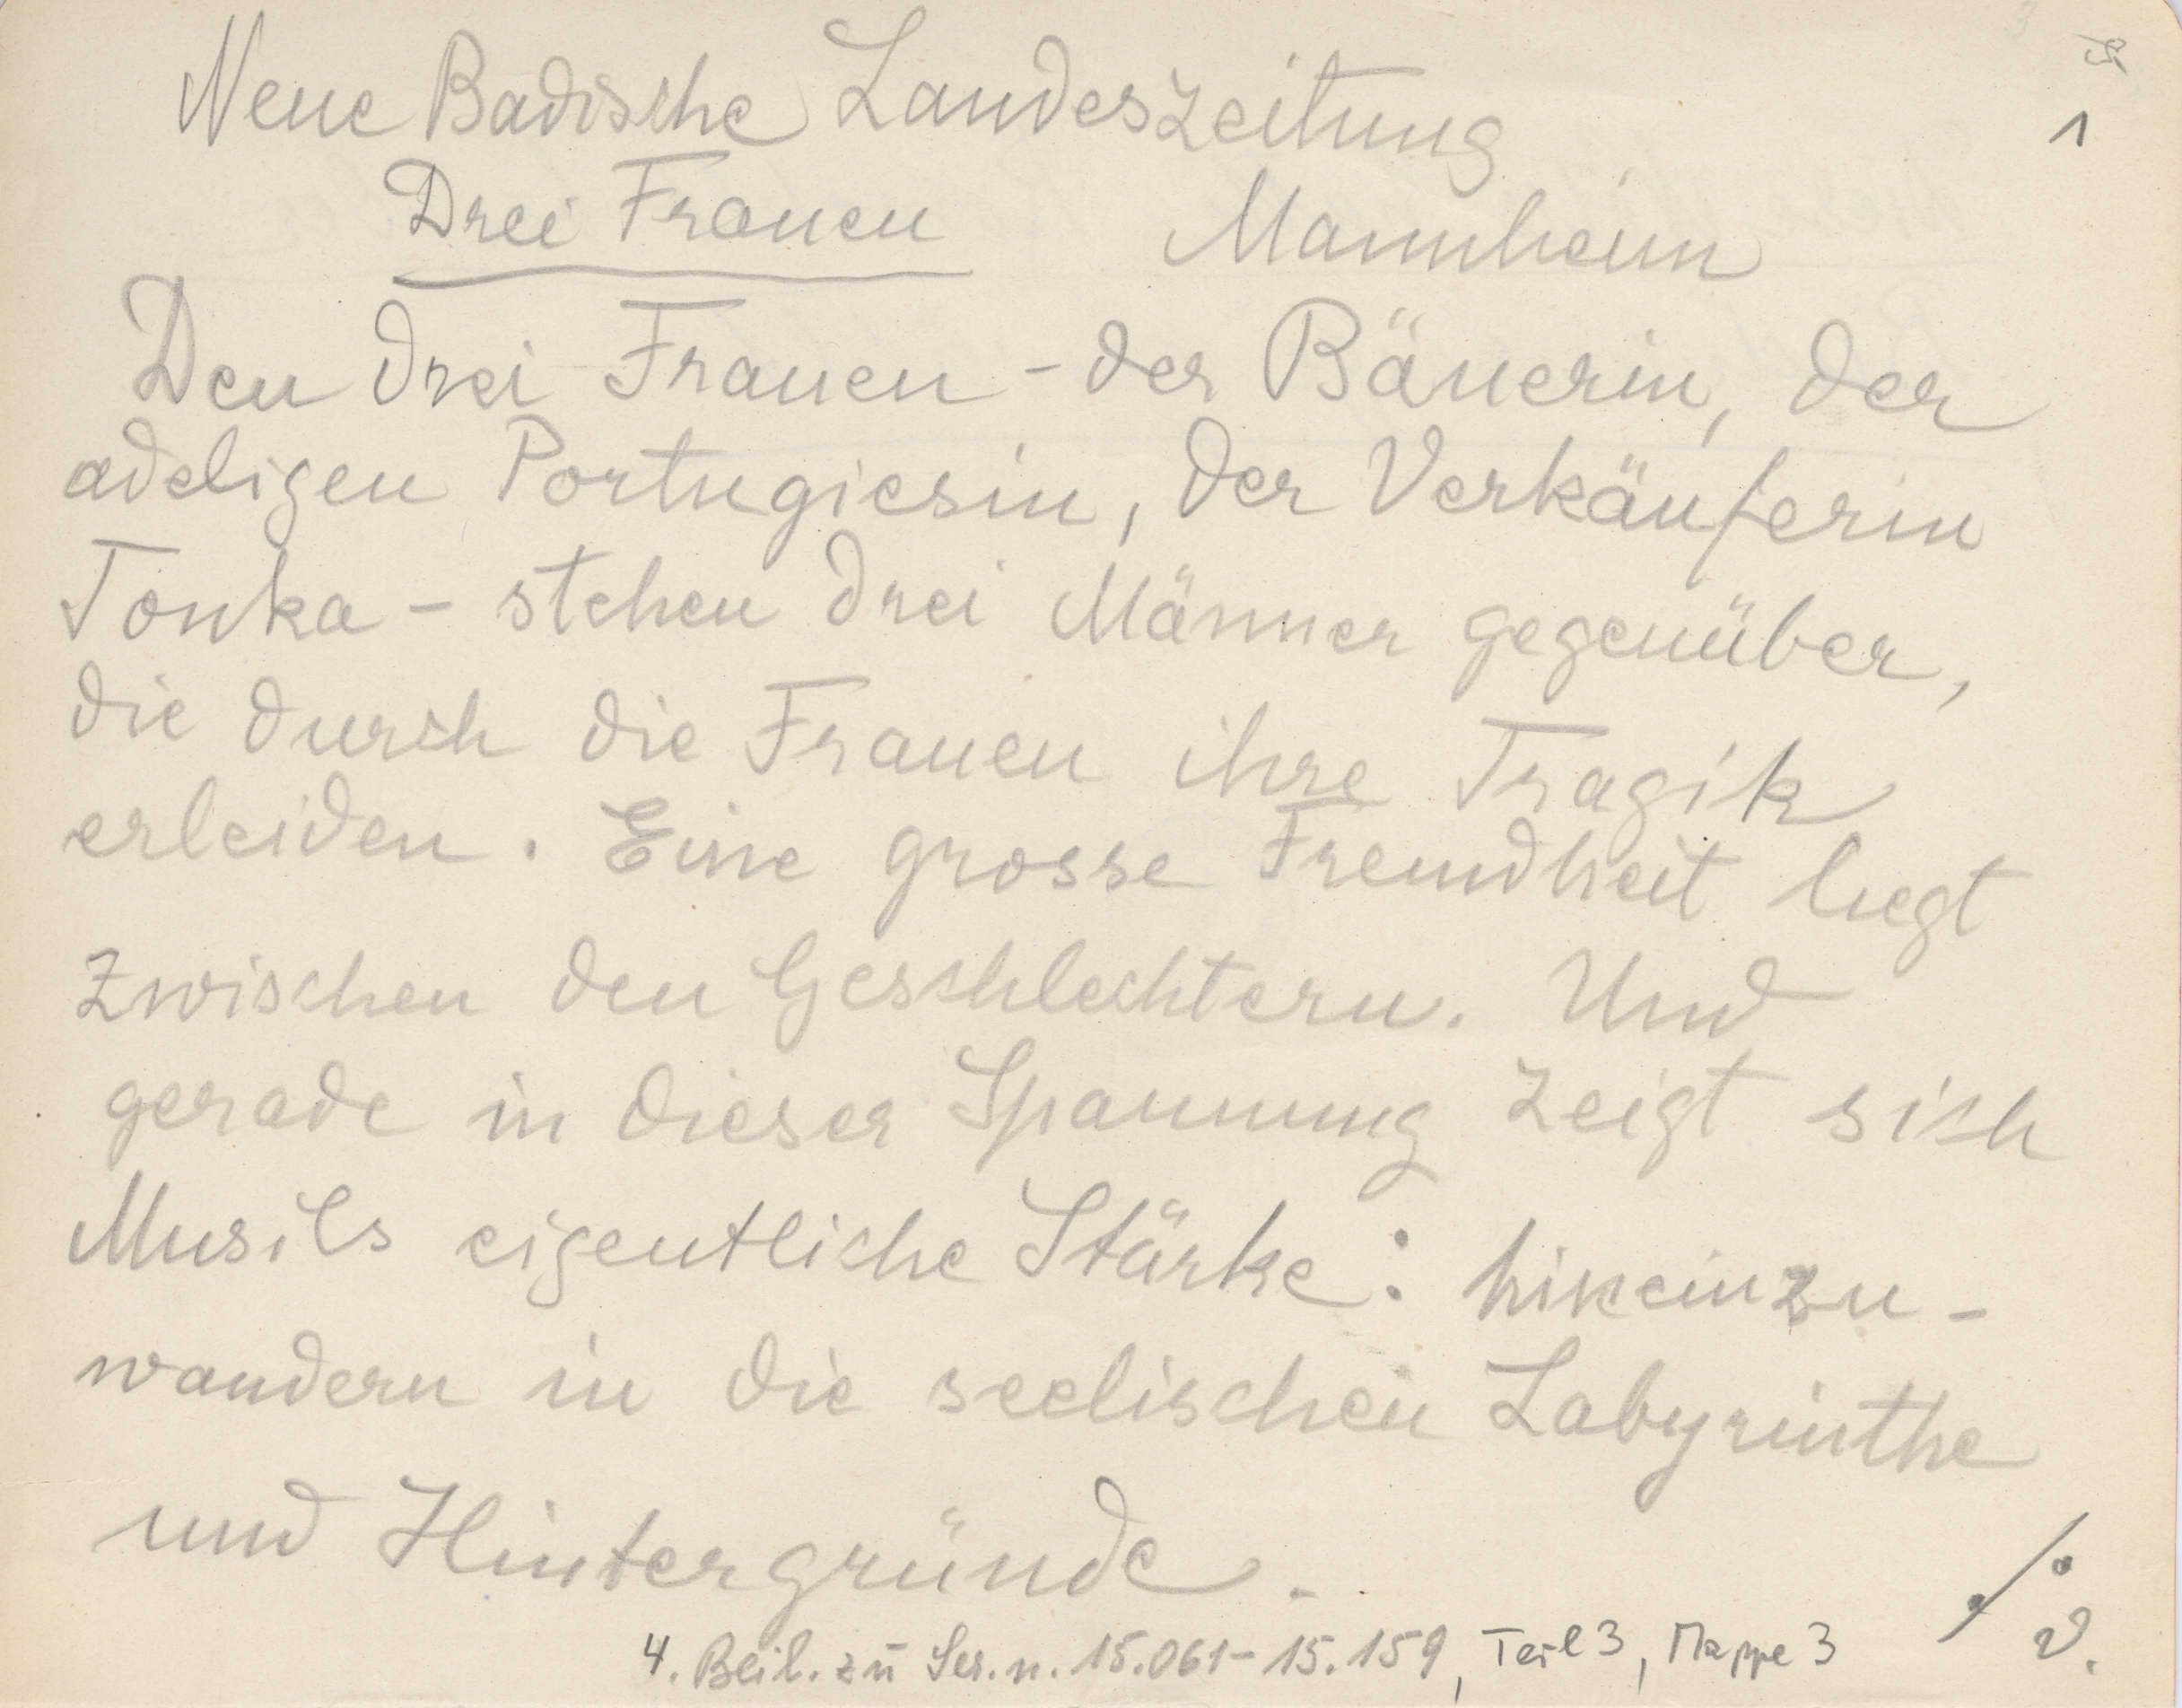 Neue Badische Landeszeitung
1
Drei Frauen Mannheim
Den drei Frauen - der Bäuerin, der
adeligen Portugiesin, der Verkäuferin
Tonka - stehen drei Männer gegenüber,
die durch die Frauen ihre Tragik
erleiden. Eine grosse Fremdheit liegt
zwischen den Geschlechtern. Und
gerade in dieser Spannung zeigt sich
Musils eigentliche Stärke: hineinzu-
wandern in die seelischen Labyrinthe
und Hintergründe.
4. Beil. zu Ser. n. 15.061-15.159, Teil 3, Mappe 3